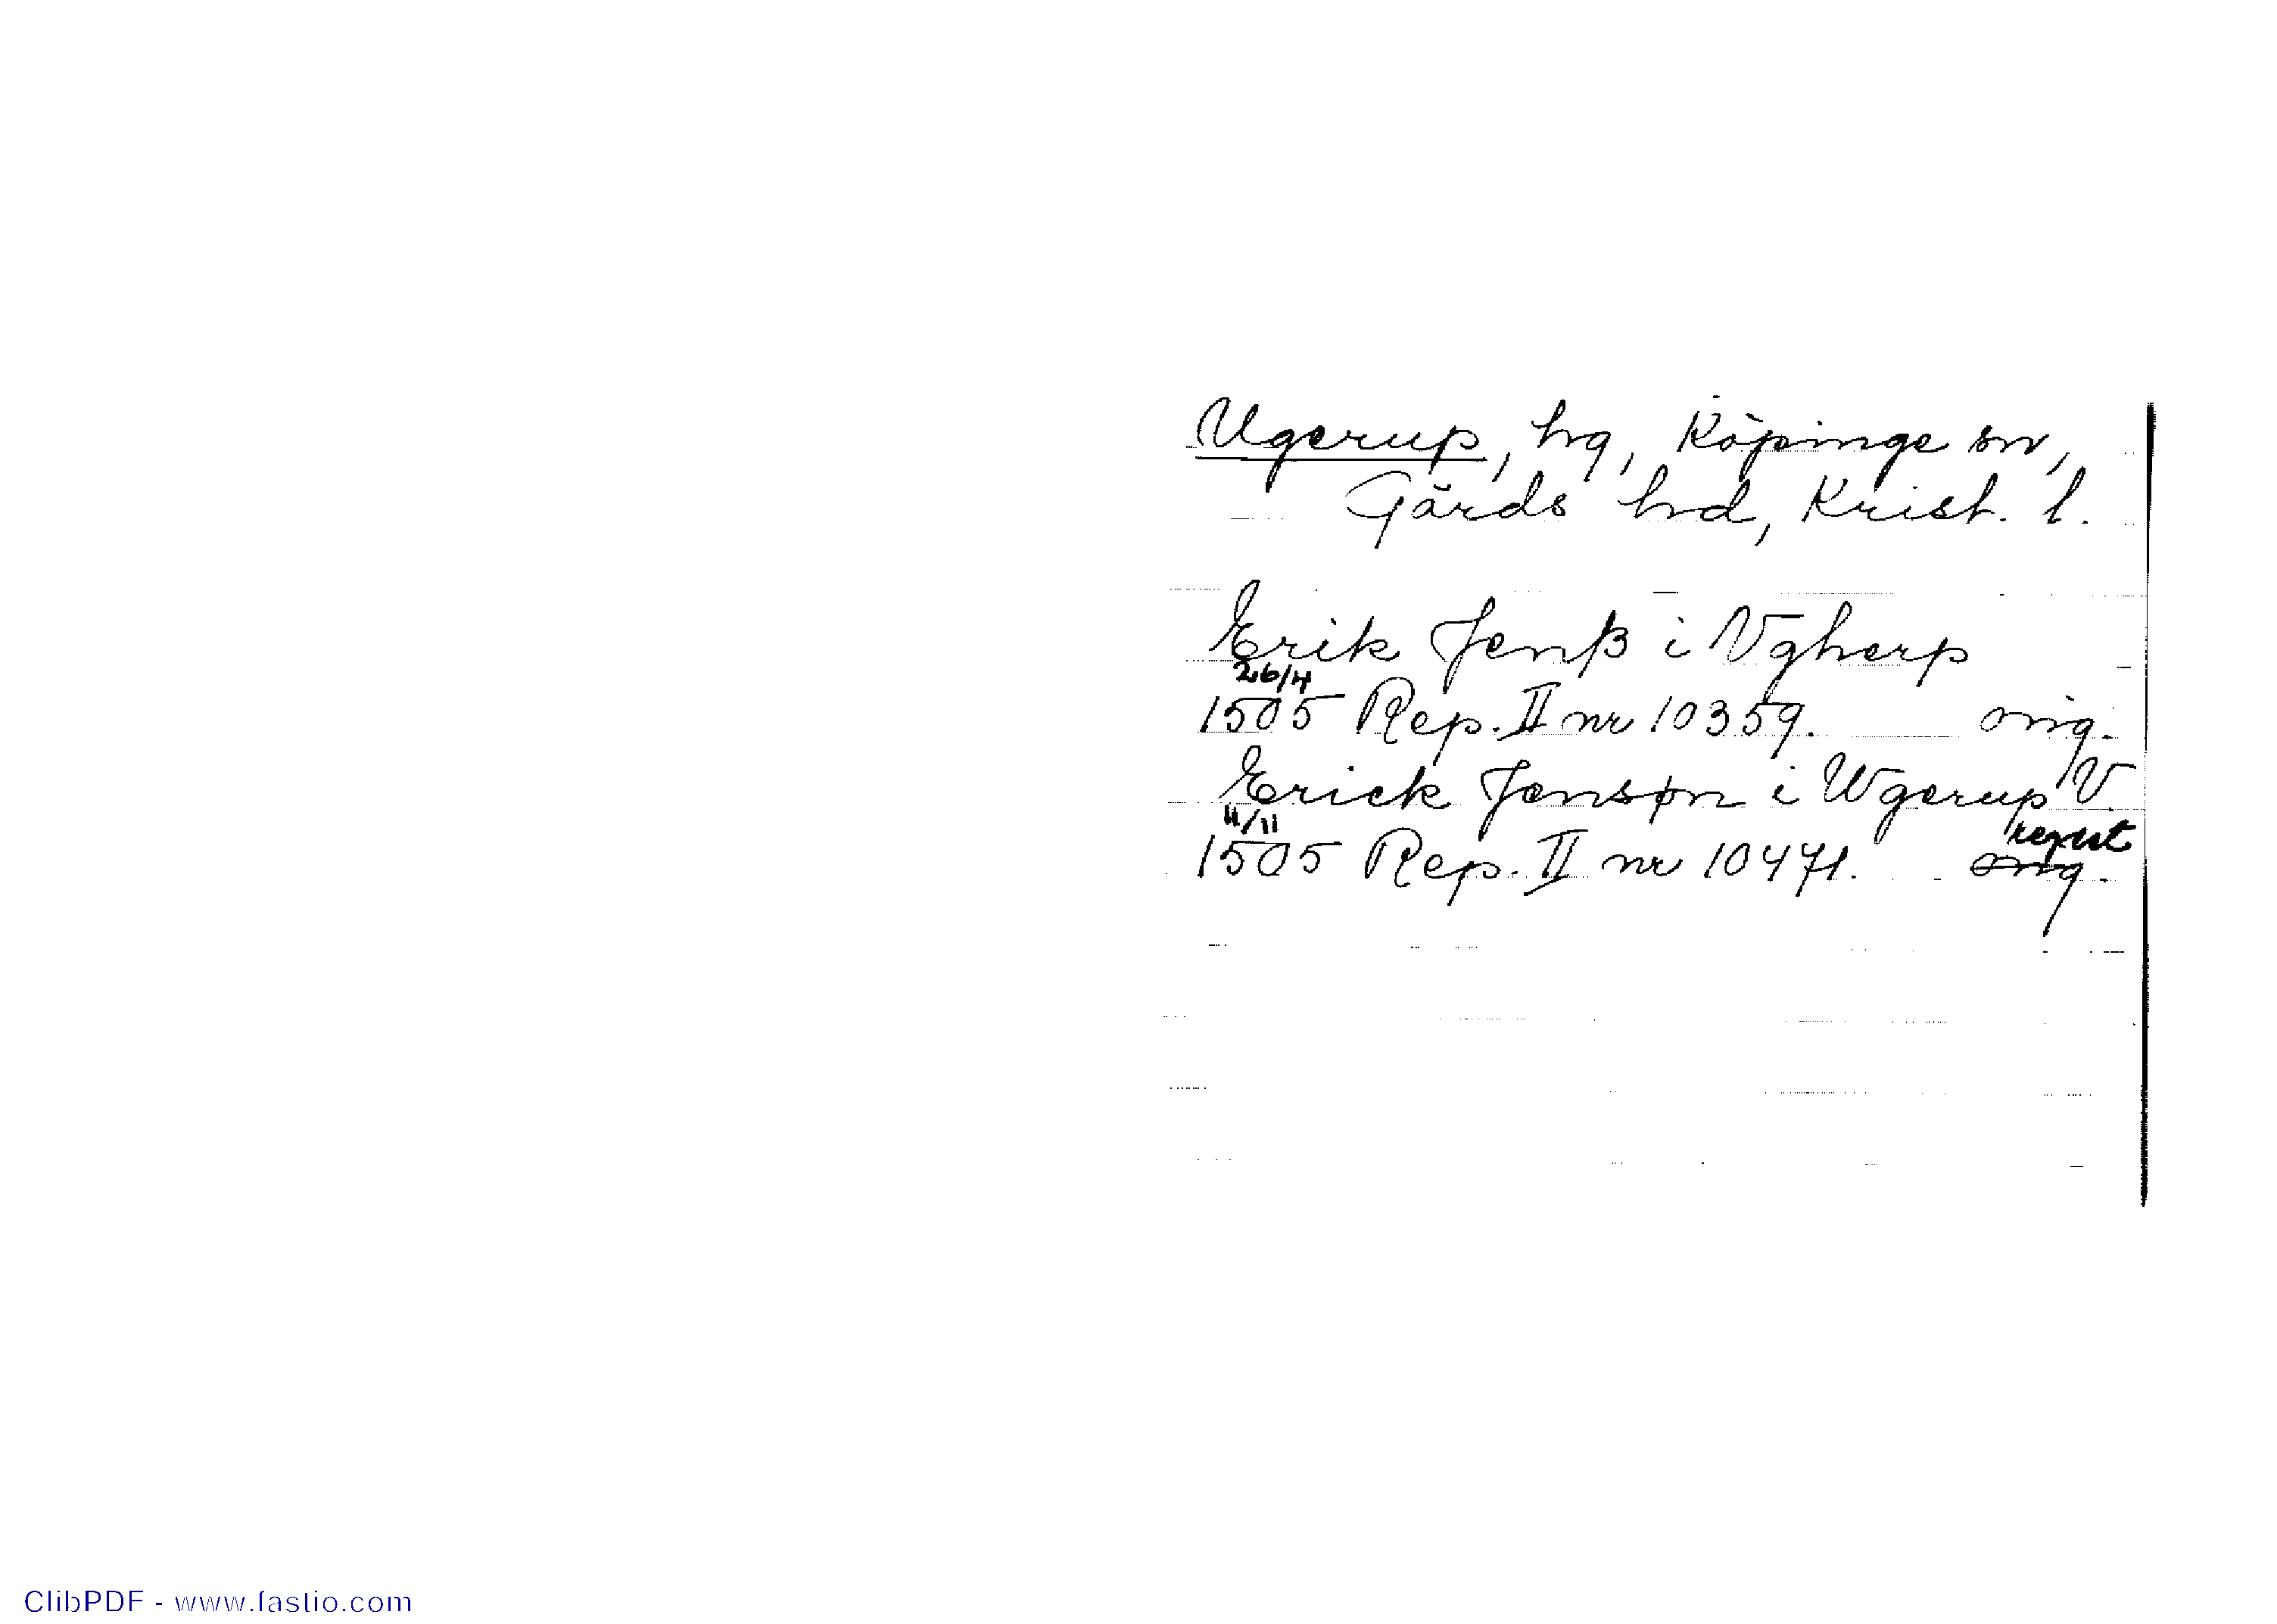 Ugerup, hg, Köpinge sn,
Gärds hd, Krist. l.
Erik Jenß i Vgherp
26/4
1505 Rep. II nr 10359. orig.
Erick Jensøn i Wgerup V.
11/11
1505 Rep. II nr 10471. orig.
ClibPDF - www.fastio.com